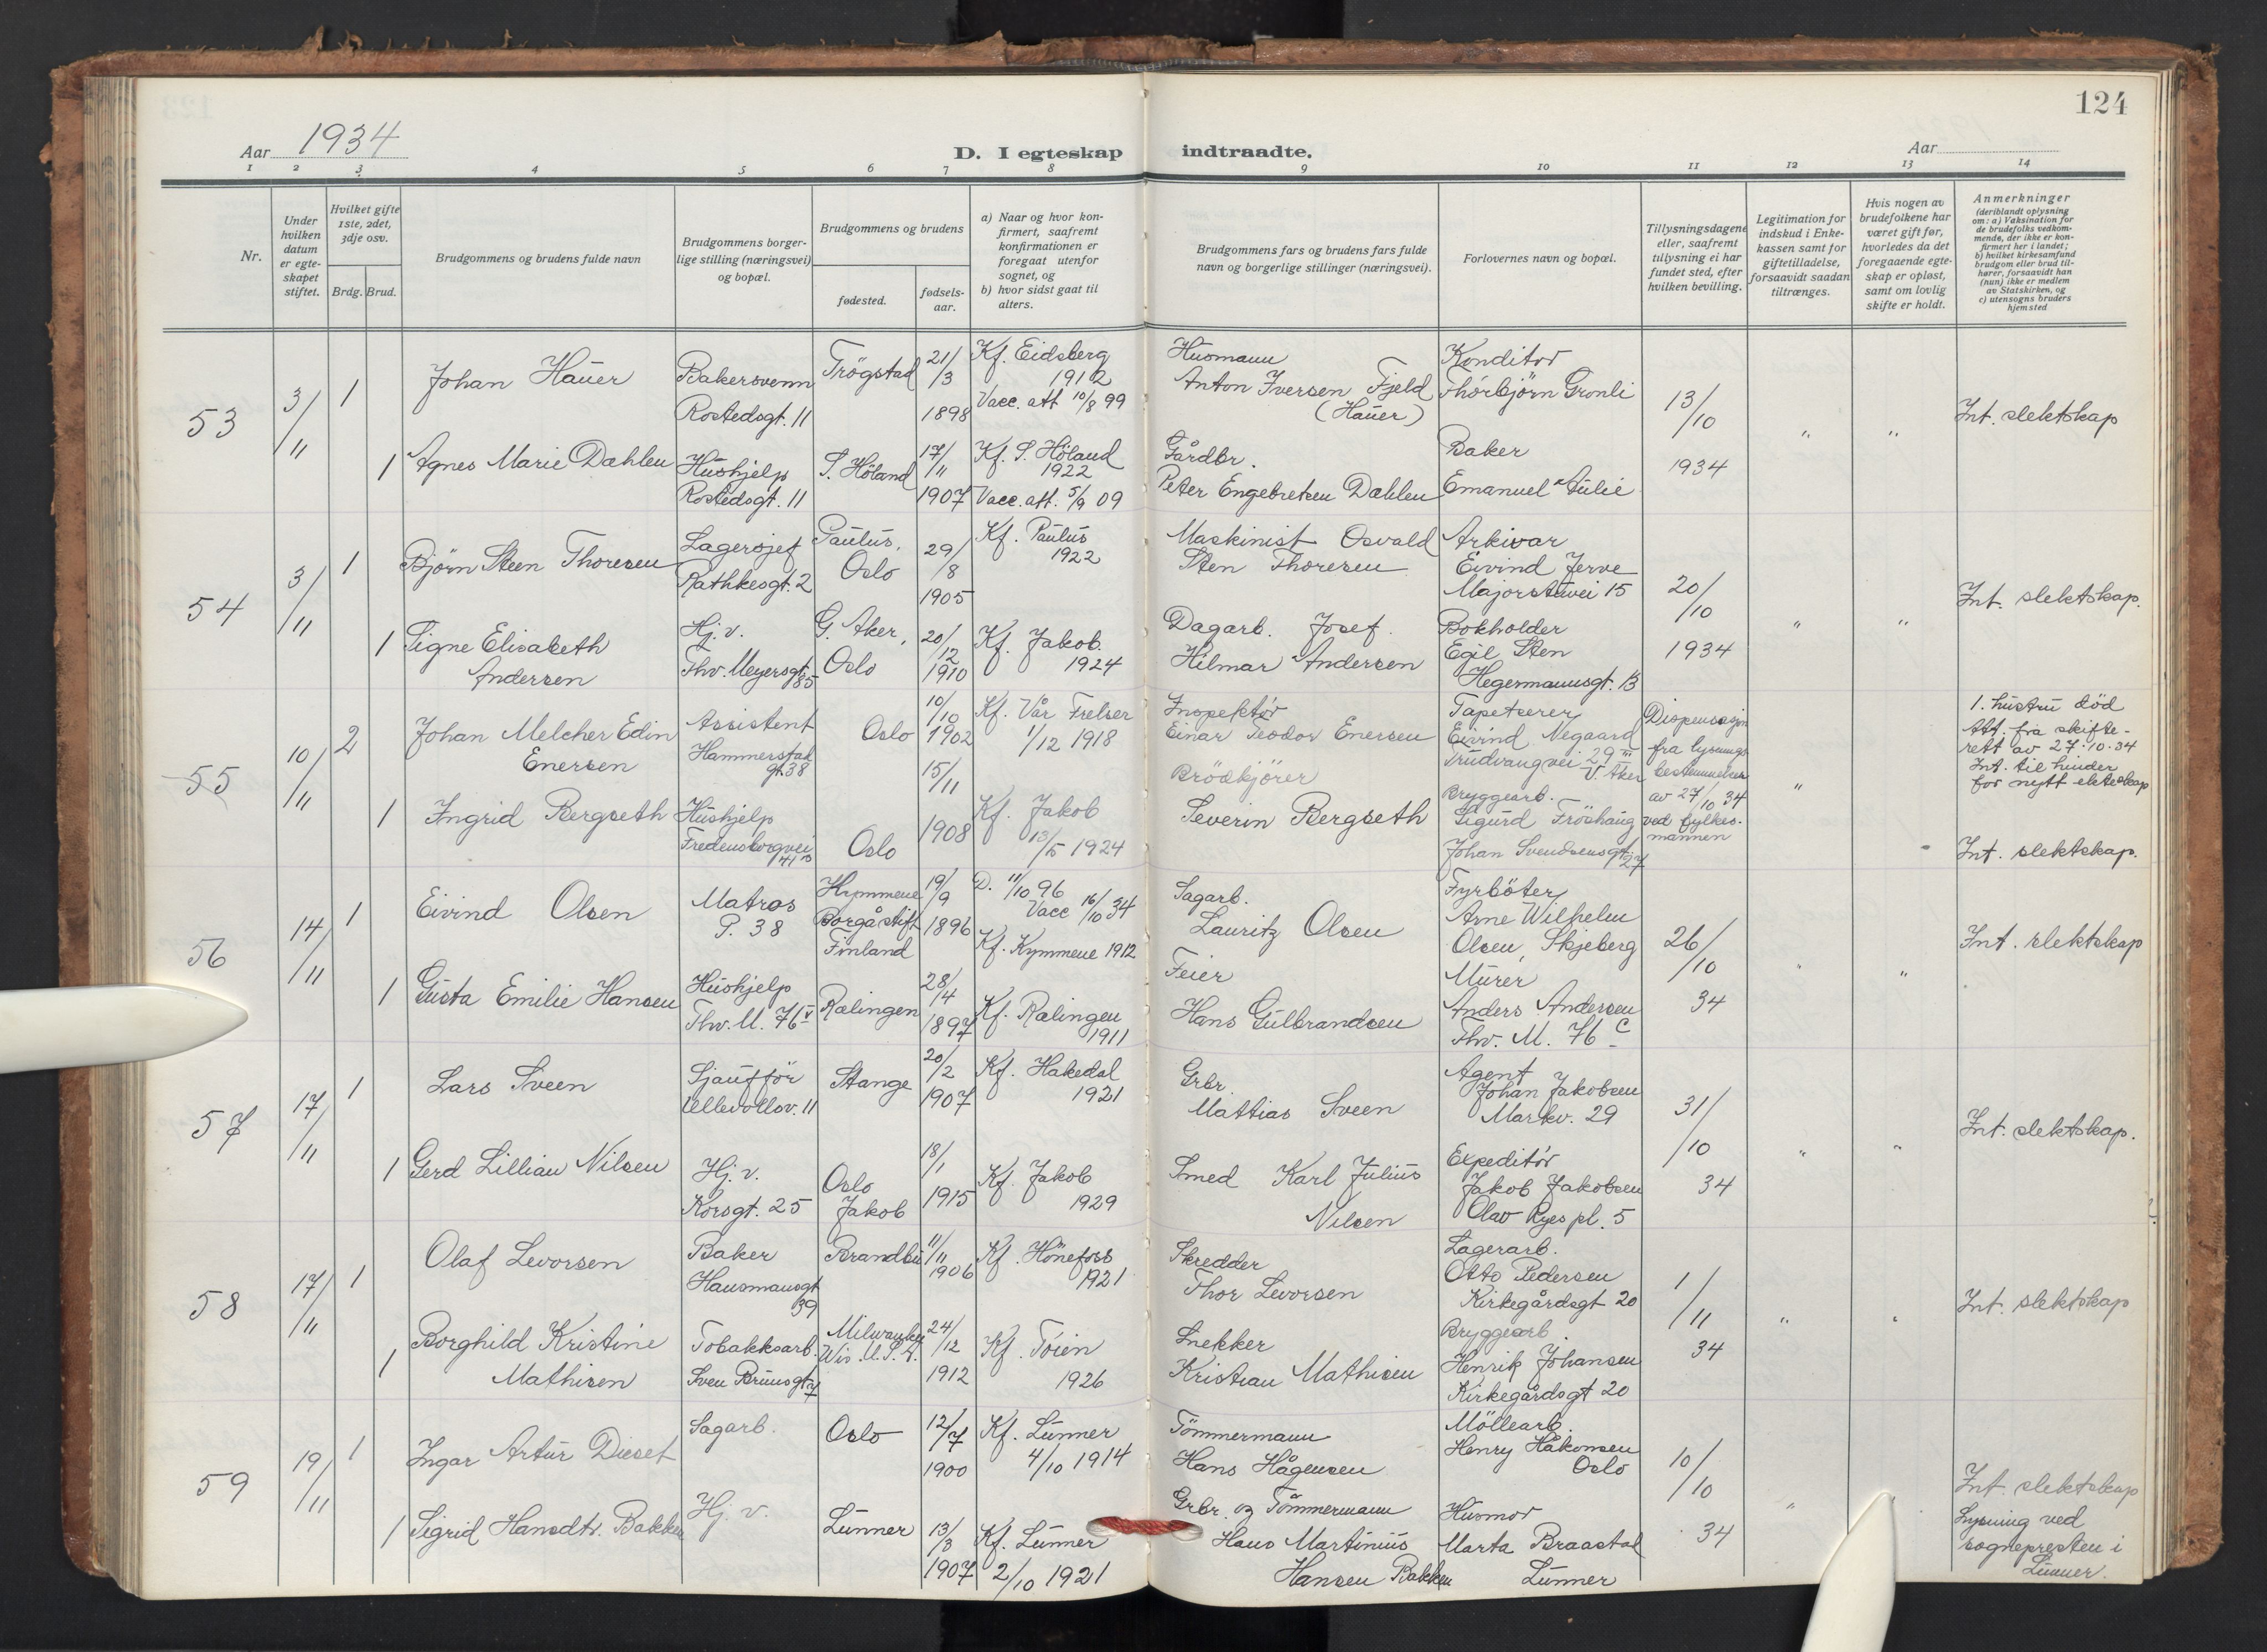 124
Aar 1934
D. I egteskap indtraadte.
Aar
1 2 3 4 5 6 7 8 9 10 11 12 13 14
Nr.
Under
hvilken
datum
er egte-
skapet
stiftet.
Hvilket gifte
1ste, 2det,
3dje osv.
Brdg. Brud.
Brudgommens og brudens fulde navn
Brudgommens borger-
lige stilling (næringsvei)
og bopæl.
Brudgommens og brudens
fødested.
fødsels-
aar.
a) Naar og hvor kon-
firmert, saafremt
konfirmationen er
foregaat utenfor
sognet, og
b) hvor sidst gaat til
alters.
Brudgommens fars og brudens fars fulde
navn og borgerlige stillinger (næringsvei).
Forlovernes navn og bopæl.
Tillysningsdagene
eller, saafremt
tillysning ei har
fundet sted, efter
hvilken bevilling.
Legitimation for
indskud i Enke-
kassen samt for
giftetilladelse,
forsaavidt saadan
tiltrænges.
Hvis nogen av
brudefolkene har
været gift før,
hvorledes da det
foregaaende egte-
skap er opløst,
samt om lovlig
skifte er holdt.
Anmerkninger
(deriblandt oplysning
om: a) Vaksination for
de brudefolks vedkom-
mende, der ikke er kon-
firmert her i landet;
b) hvilket kirkesamfund
brudgom eller brud til-
hører, forsaavidt han
(hun) ikke er medlem
av Statskirken, og
c) utensogns bruders
hjemsted
53
3/11
1
Johan Hauer
Bakersvenn
Rostedsgt. 11
Trögstad
21/3
1898
Kf. Eidsberg
1912
Vacc. att 10/8 99
Husmann
Anton Iversen Fjeld
(Hauer)
Konditor
Thorbjörn Grönli
13/10
1934
"
"
Int. slektskap
1
Agnes Marie Dæhlen
Hushjelp
Rostedsgt. 11
S. Höland
17/11
1907
Kf. S. Höland
1922
Vacc. att. 5/9 09
Gårdbr.
Peter Engebretsen Dæhlen
Baker
Emanuel Aulie
54
3/11
1
Björn Steen Thoresen
Lagersjef
Rathkesgt. 2
Paulus,
Oslo
29/8
1905
Kf. Paulus
1922
Maskinist Osvald
Sten Thoresen
Arkivar
Eivind Jerve
Majorstuvei 15
20/10
1934
"
"
Int. slektskap.
1
Signe Elisabeth
Andersen
Hj. v.
Thv. Meyersgt.
85
G. Aker,
Oslo
20/12
1910
Kf. Jakob.
1924
Dagarb. Josef
Hilmar Andersen
Bokholder
Egil Sten
Hegermannsgt. 13
55
10/11
2
Johan Melcher Edin
Enersen
Assistent
Hammerstad
gt. 38
Oslo
10/10
1902
Kf. Vår Frelser
1/12 1918
Inspektör
Einar Teodor Enersen
Tapetserer
Eivind Negaard
Trudvangvei 29 III
V. Aker
Dispensasjon
fra lysnings
bestemmelser
av 27/10 34
ved fylkes-
mannen
"
1. hustru död
Att. fra skifte-
rett av 27.10.34
Int. til hinder
for nytt ekteskap
Int. slektskap.
1
Ingrid Bergseth
Hushjelp
Fredensborgvei
41 B
Oslo
15/11
1908
Kf. Jakob
13/5 1924
Brödkjörer
Severin Bergseth
Bryggearb.
Sigurd Fröshaug
Johan Svendsensgt.
27
56
14/11
1
Eivind Olsen
Matros
P. 38
Kymmene
Borgå stift
Finland
19/9
1896
D. 11/10 96
Vacc 16/10 34
Kf. Kymmene 1912
Sagarb.
Lauritz Olsen
Fyrböter
Arne Wilhelm
Olsen, Skjeberg
26/10
34
"
"
Int. slektskap
1
Gusta Emilie Hansen
Hushjelp
Thv. M. 76 V
Rælingen
28/4
1897
Kf. Rælingen
1911
Feier
Hans Gulbrandsen
Murer
Anders Andersen
Thv. M. 76 C
57
17/11
1
Lars Sveen
Sjauffför
Ullevollsv. 11
Stange
20/2
1907
Kf. Hakedal
1921
Grbr
Mattias Sveen
Agent
Johan Jakobsen
Markv. 29
31/10
34
"
"
Int. slektskap.
1
Gerd Lillian Nilsen
Hj. v.
Korsgt. 25
Oslo
Jakob
18/1
1915
Kf. Jakob
1929
Smed Karl Julius
Nilsen
Expeditör
Jakob Jakobsen
Olav Ryes pl. 5
58
17/11
1
Olaf Levorsen
Baker
Hausmansgt
39
Brandbu
11/11
1906
Kf. Hönefoss
1921
Skredder
Thor Levorsen
Lagerarb.
Otto Pedersen
Kirkegårdsgt 20
1/11
34
"
"
Int. slektskap
1
Borghild Kristine
Mathisen
Tobakksarb.
Sven Brunsgt 7
Milwaukee
Wis. U.S.A.
24/12
1912
Kf. Töien
1926
Snekker
Kristian Mathisen
Bryggearb.
Henrik Johansen
Kirkegårdsgt 20
59
19/11
1
Ingar Artur Dieset
Sagarb.
Oslo
12/7
1900
Kf. Lunner
4/10 1914
Tömmermann
Hans Hågensen
Möllearb.
Henry Håkonsen
Oslo
10/10
34
"
Int. slektskap
Lysning ved
sognepresten i
Lunner.
1
Sigrid Hansdtr. Bakken
Hj. v.
Lunner
13/3
1907
Kf. Lunner
2/10 1921
Grbr. og Tömmermann
Hans Martinius
Hansen Bakken
Husmor
Marta Braastad
Lunner